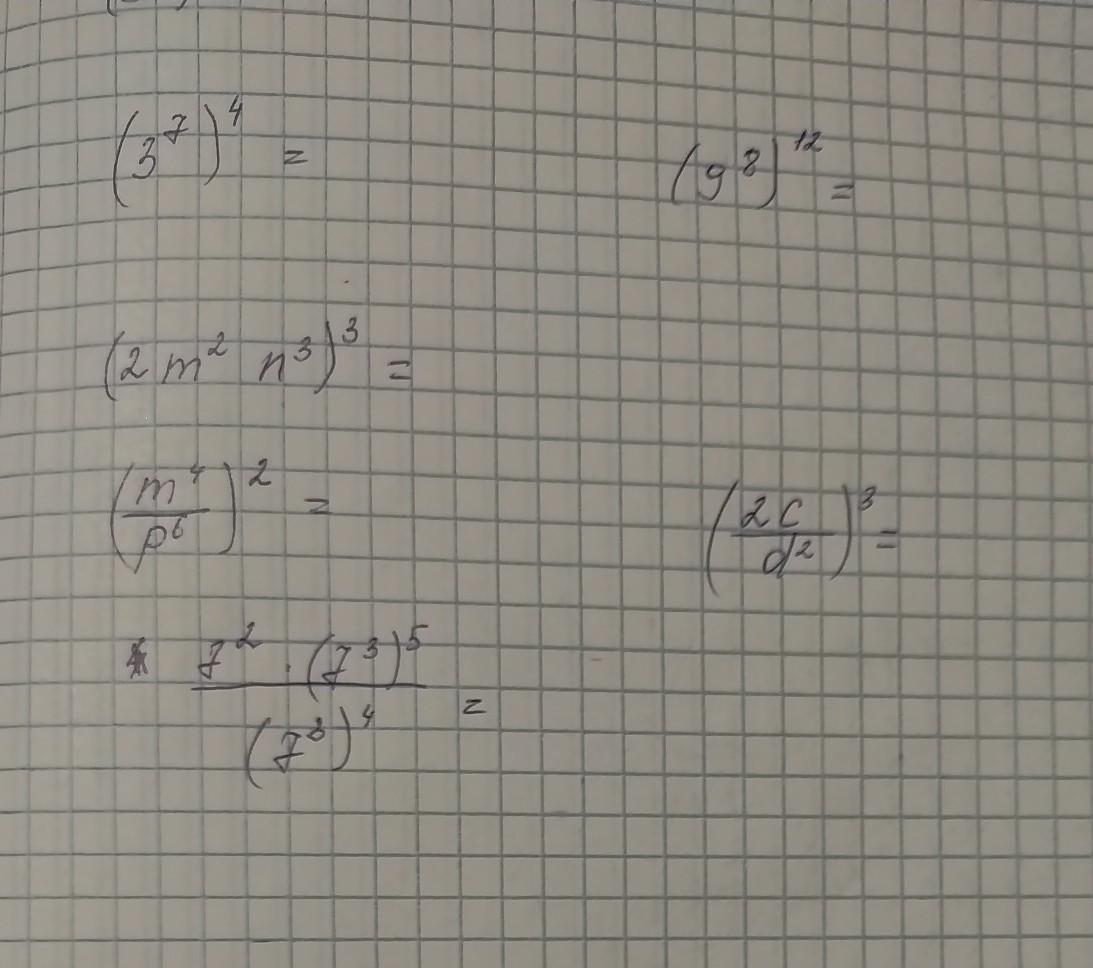 (3^7)^4 =
(9^8)^12 =
(2 m^2 n^3)^3 =
(m^4/p^6)^2 =
(2c/d^2)^3 =
7^2 · (7^3)^5 / (7^3)^4 =